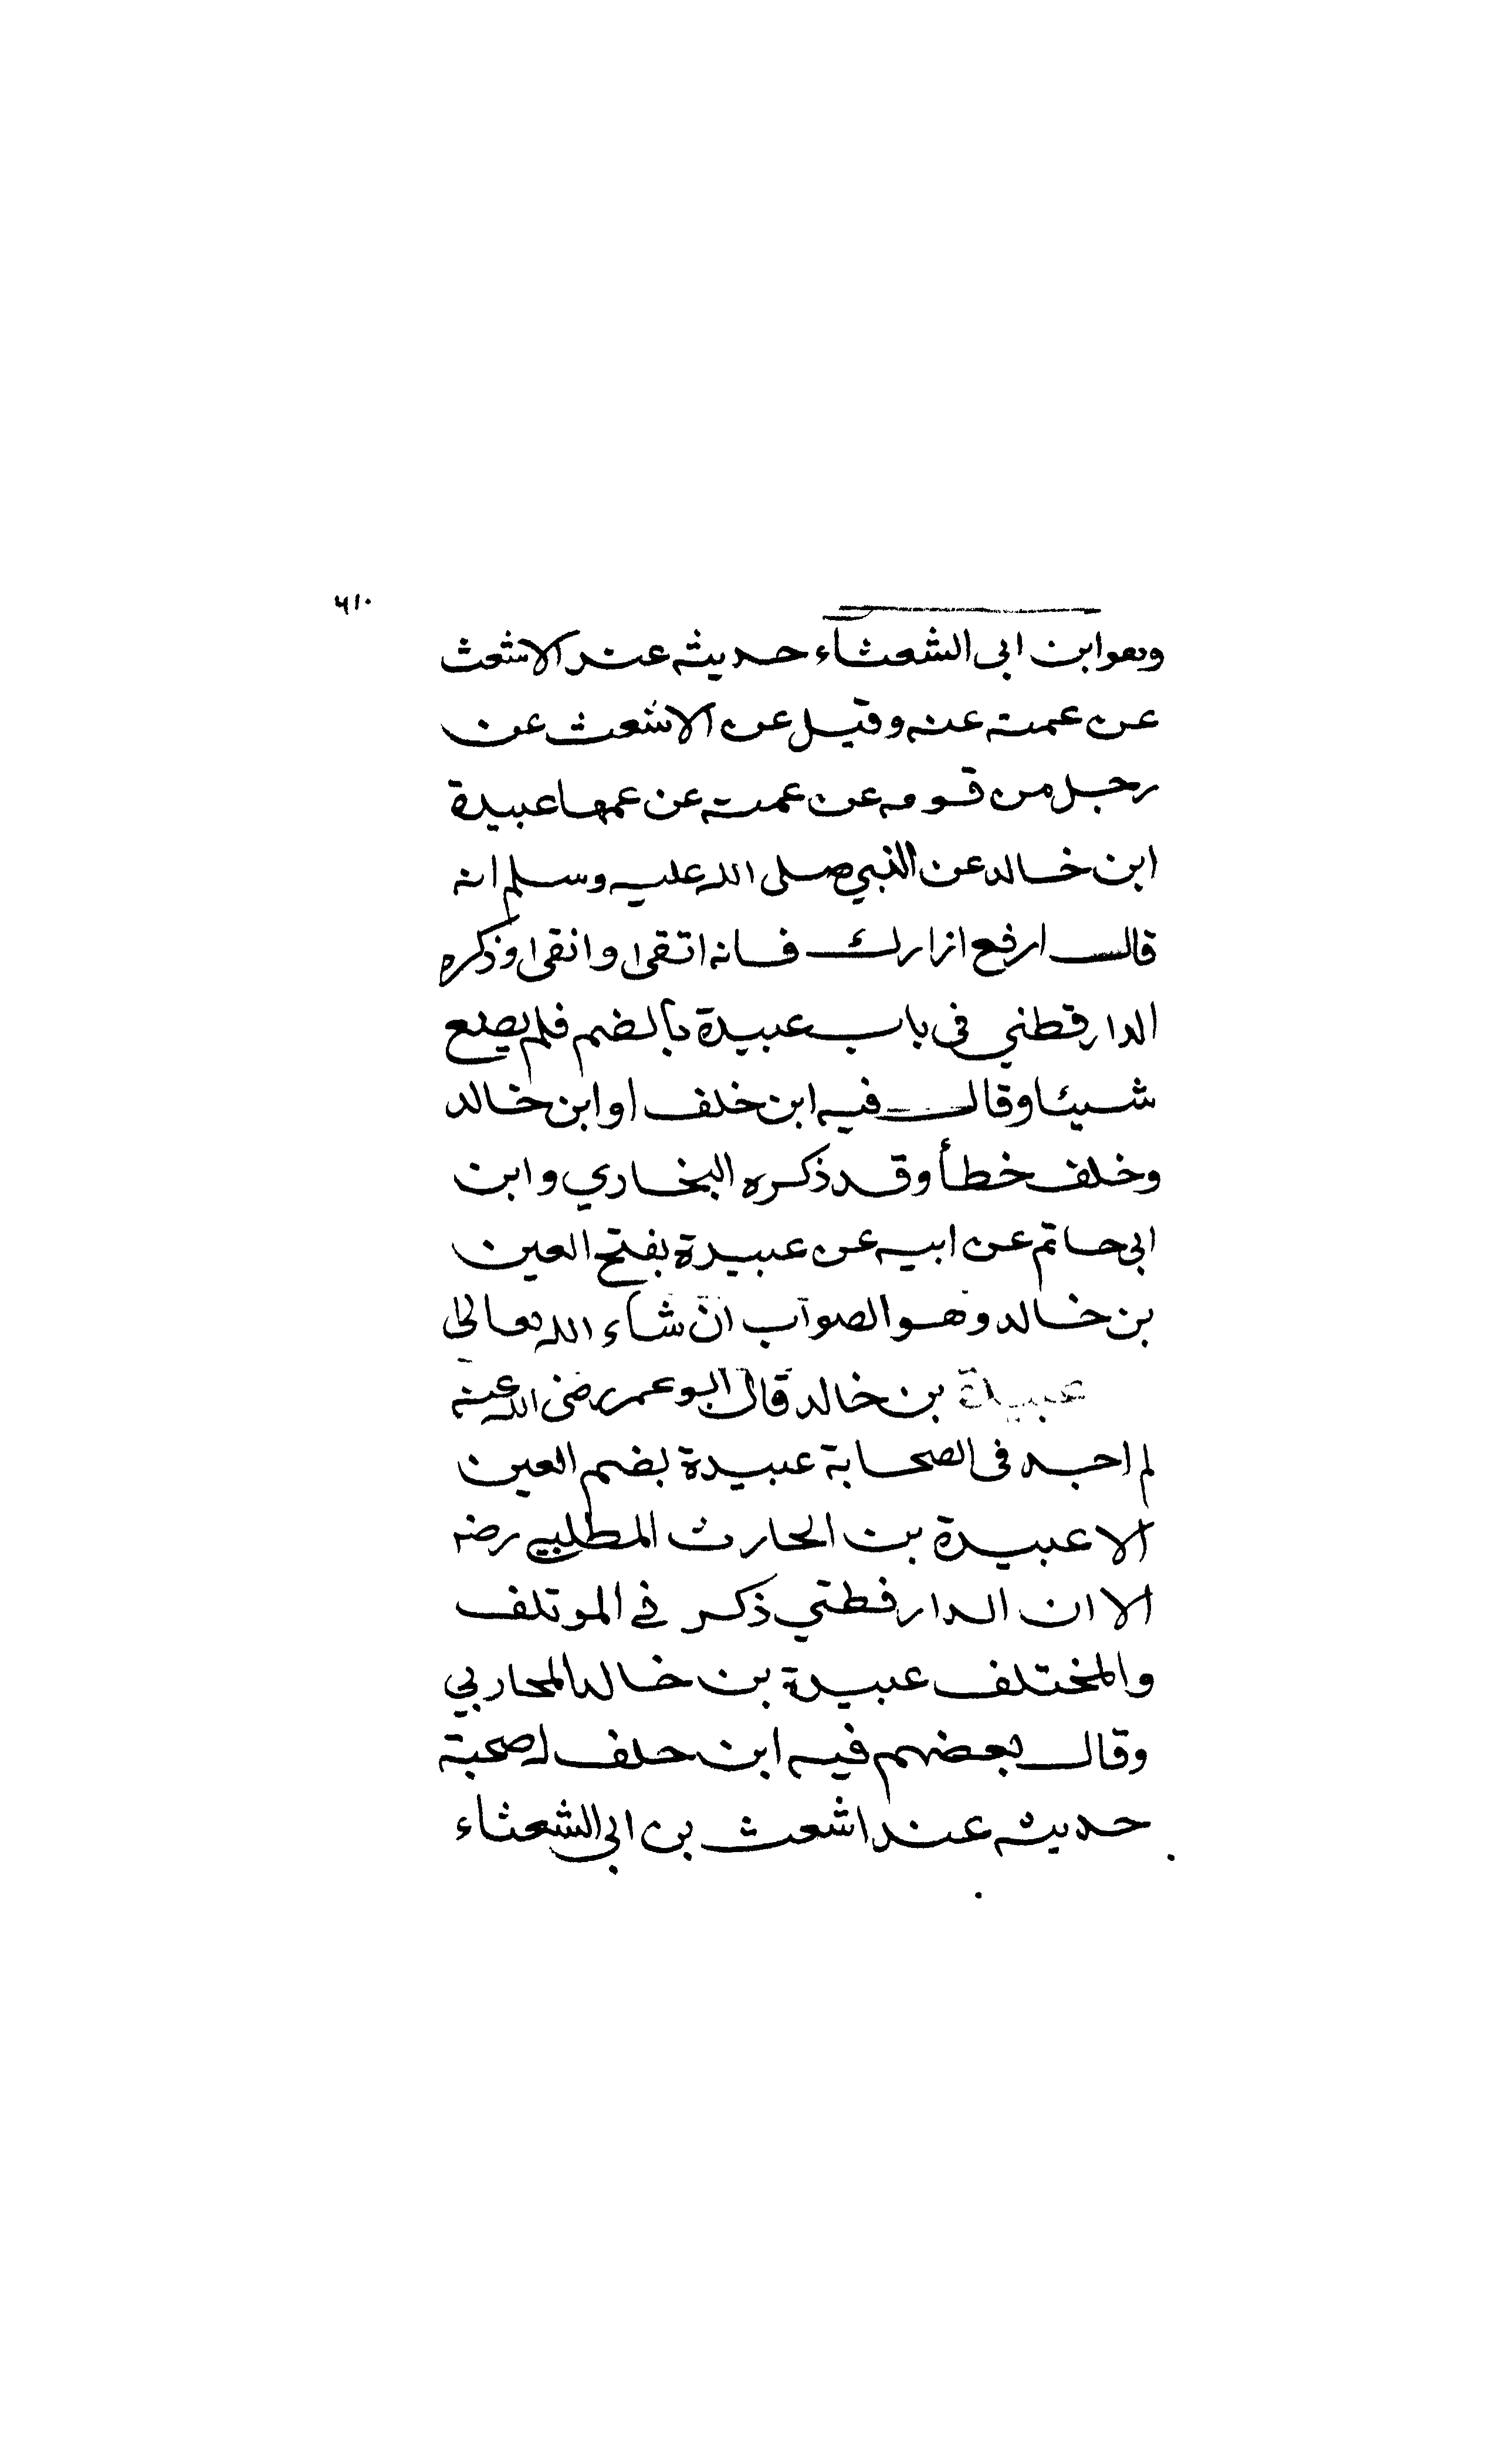 ٦١٠
وهو ابن ابى الشعثاء حديثه عند الاشعث
عن عمته عنه وقيل عن الاشعث عن
رجل من قومه عن عمته عن عمها عبيدة
ابن خالد عن النبي صلى الله عليه وسلم انه
قال ارفع ازارك فانه اتقى وانقى وذكره
الدارقطني فى باب عبيدة بالضم فلم يصنع
شيئا وقال فيه ابن خلف او ابن خالد
وخلف خطأ وقد ذكره البخاري وابن
ابى حاتم عن ابيه عن عبيدة بفتح العين
بن خالد وهو الصواب ان شاء الله تعالى
عبيدة بن خالد قال ابو عمر رضى الله عنه
لم اجد فى الصحابة عبيدة بضم العين
الا عبيدة بن الحارث المطلبي رضه
الا ان الدارقطني ذكر في الموتلف
والمختلف عبيدة بن خالد المحاربي
وقال بعضهم فيه ابن خلف له صحبة
حديثه عند اشعث بن ابي الشعثاء